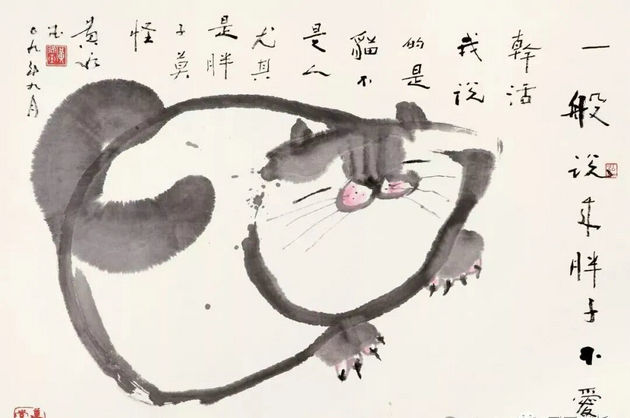 一般说来胖子不爱
幹活
我说
的是
貓不
是人
尤其
是胖
子莫
怪
黄永
玉
九月